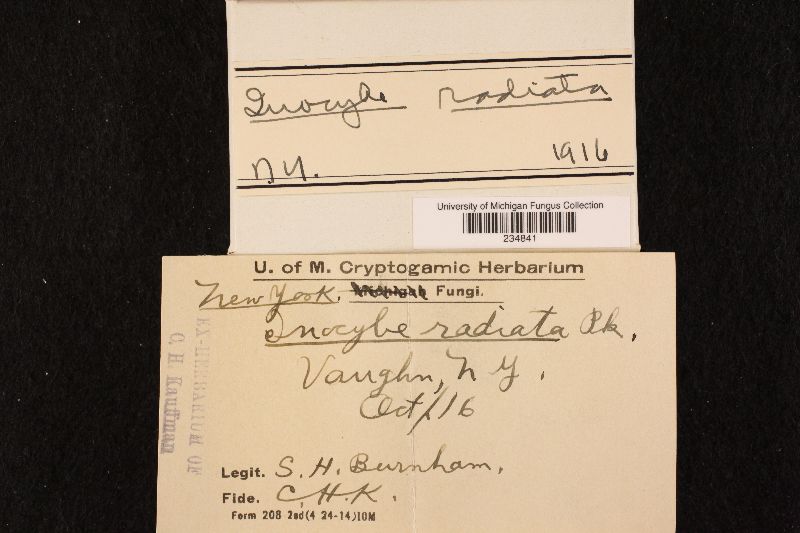 Inocybe radiata
N.Y. 1916
University of Michigan Fungus Collection
234841
U. of M. Cryptogamic Herbarium
New York. Michigan Fungi.
Inocybe radiata Pk.
Vaughn, N Y.
Oct/16
EX-HERBARIUM OF
C. H. Kauffman
Legit. S. H. Burnham.
Fide. C.H.K.
Form 208 2nd(4 24-14)10M